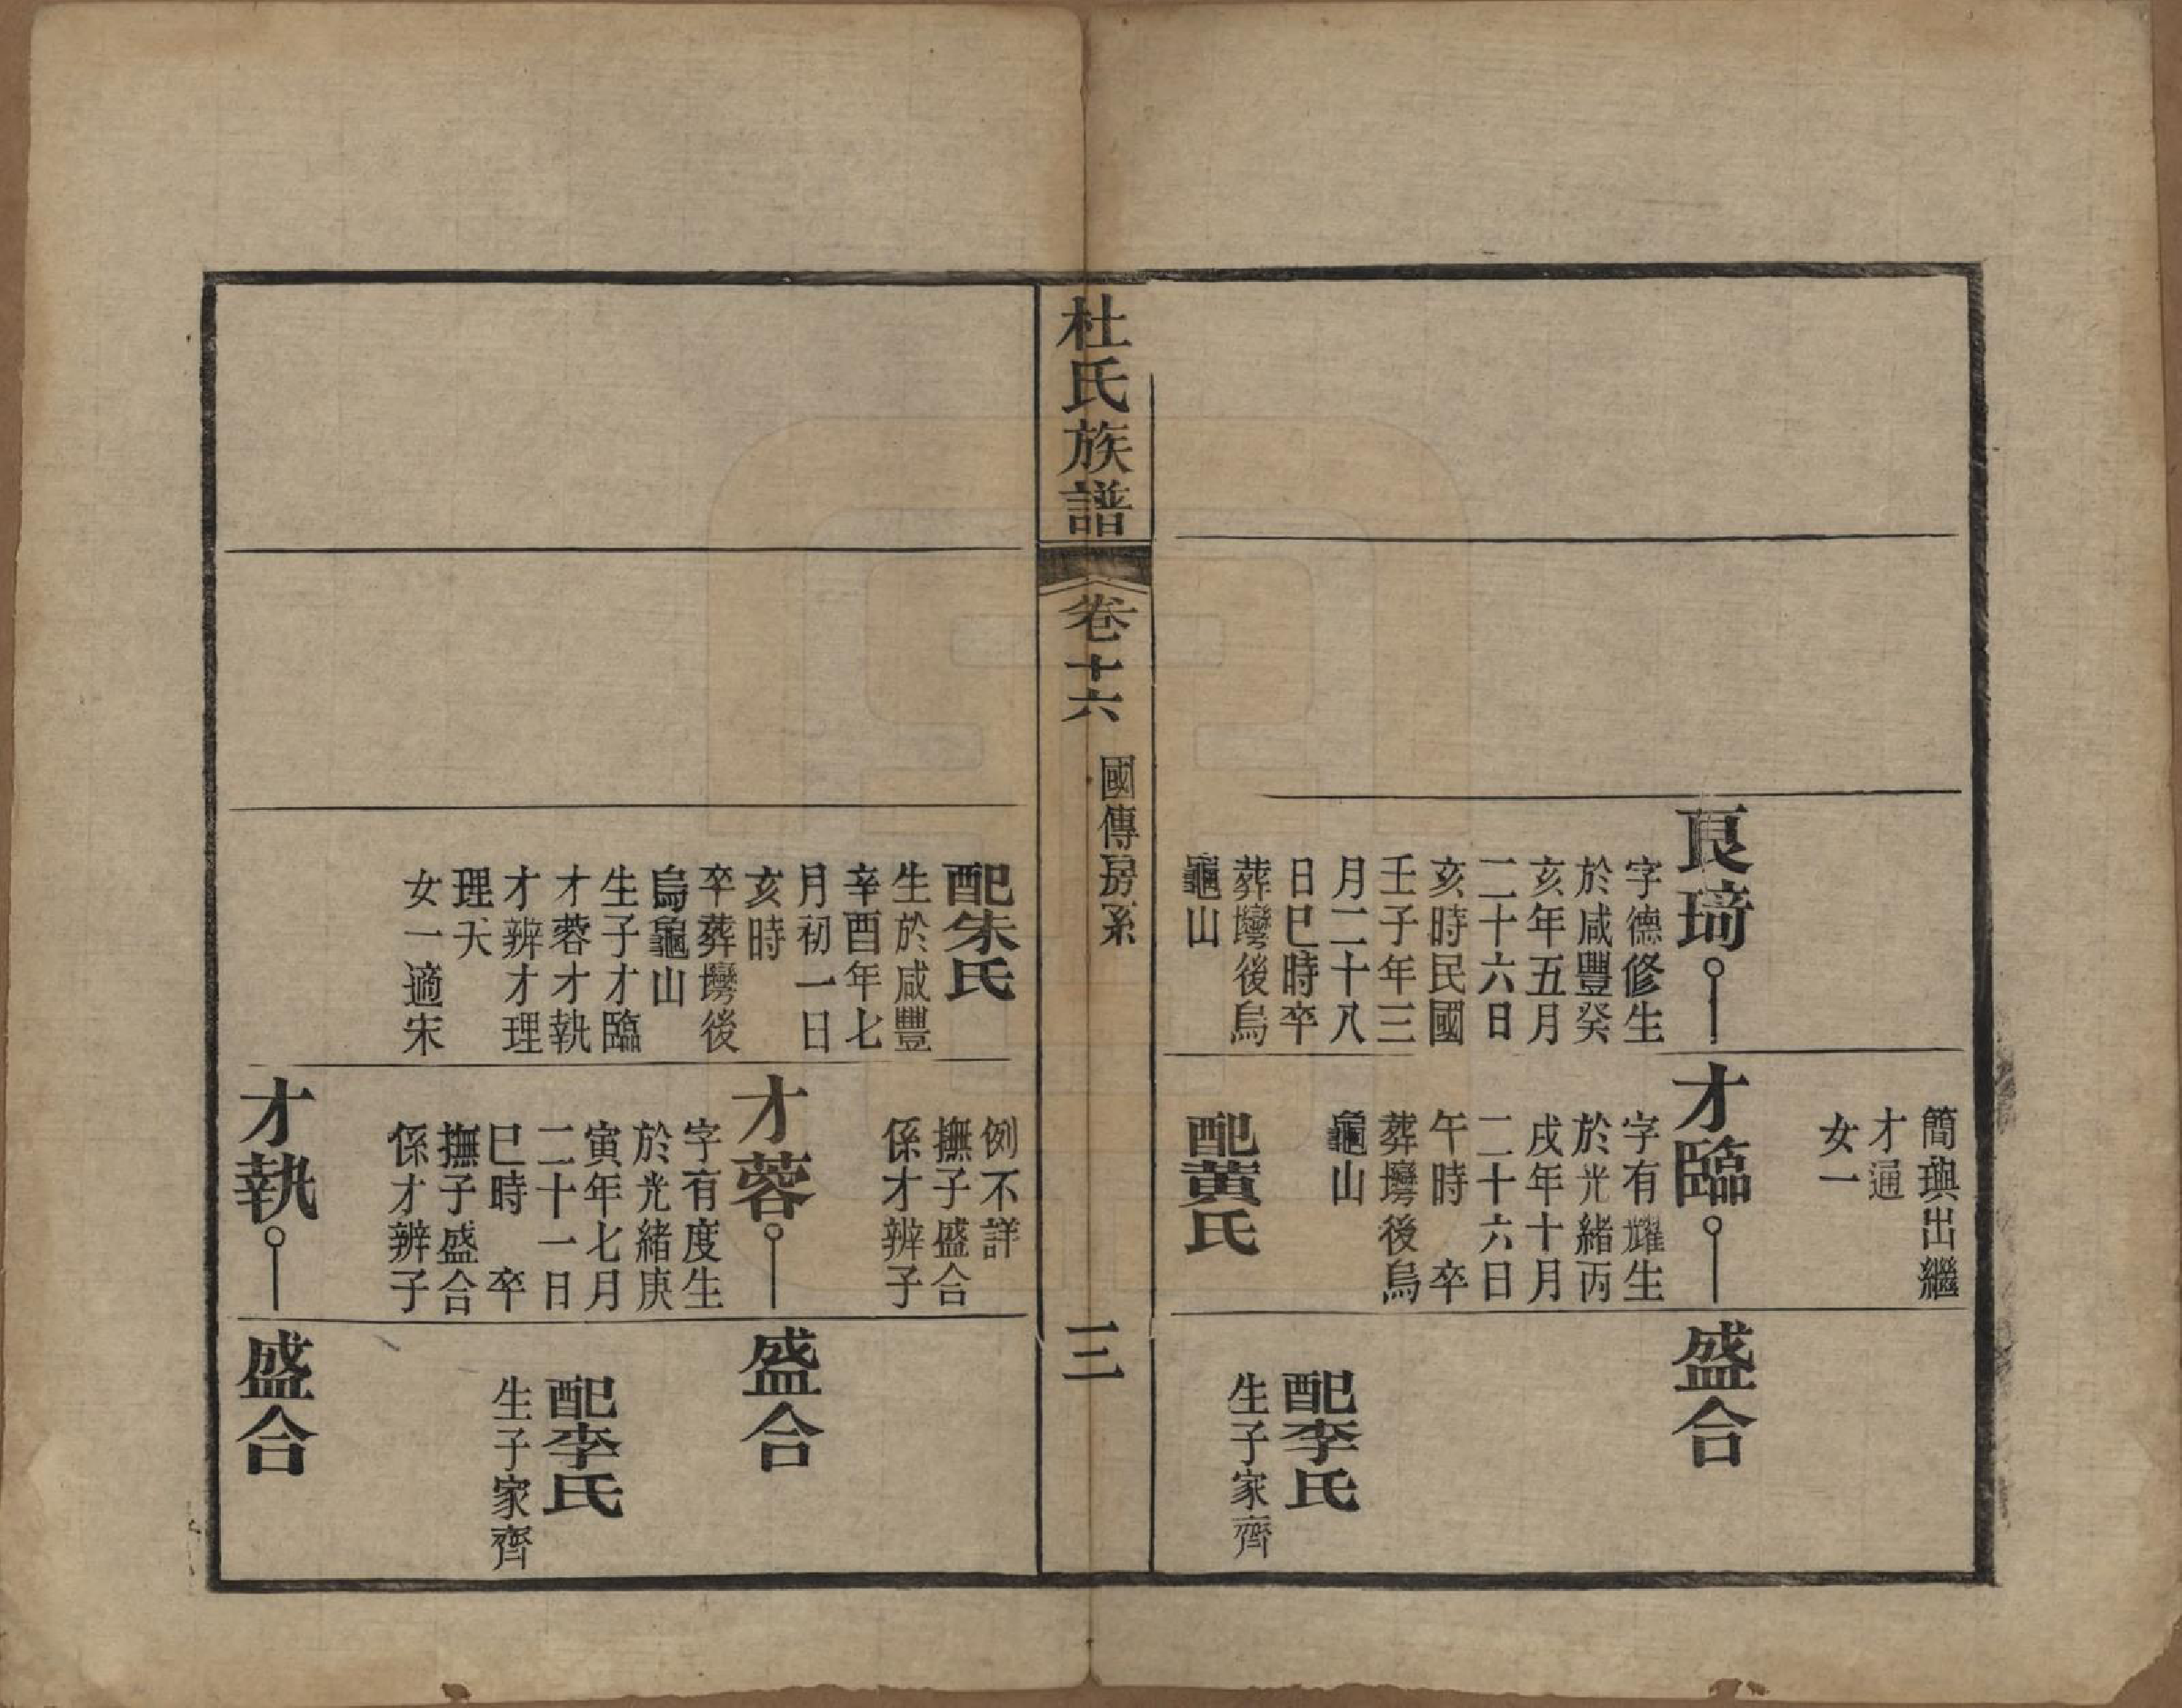 良琦
字德修生
於咸豐癸
亥年五月
二十六日
亥時民國
壬子年三
月二十八
日巳時卒
葬壪後烏
龜山
簡璵出繼
才通
女一
才臨
字有耀生
於光緒丙
戌年十月
二十六日
午時　卒
葬壪後烏
龜山
配黄氏
盛合
配李氏
生子家齊
杜氏族譜
卷十六
國傳房系
三
配朱氏
生於咸豐
辛酉年七
月初一日
亥時
卒葬壪後
烏龜山
生子才臨
才蓉才執
才辦才理
理夭
女一適宋
例不詳
撫子盛合
係才辦子
才蓉
字有度生
於光緒庚
寅年七月
二十一日
巳時　卒
撫子盛合
係才辦子
才執
盛合
配李氏
生子家齊
盛合